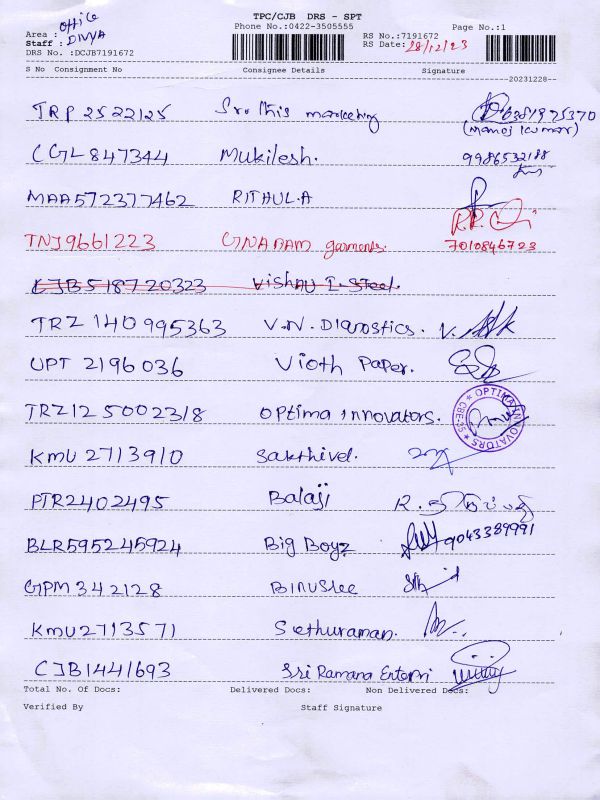 TPC/CJB DRS - SPT
Phone No.:0422-3505555
Page No.:1
Area : Office
Staff : DIVYA
DRS No. :DCJB7191672
RS No.:7191672
RS Date: 28/12/23
S No Consignment No Consignee Details Signature
20231228
TRP 2522125 Sruthis marketing 6381975370
(Manoj Kumar)
CGL 847344 Mukilesh. 9986532188
MAA572377462 RITHUL.A
TNJ9661223 GNANAM garments. 7010846723
CJB518720323 Vishnu I-Steel.
TRZ 140995363 V.N. Dianostics.
UPT 2196036 Vioth Paper.
TRZ125002318 Optima innovators. OPTIMA INNOVATORS CBE-35
KMU 2713910 Sakthivel.
PTR2402495 Balaji
BLR595245924 Big Boyz 9043389991
GPM 342128 Binusree
KMU2713571 Sethuraman.
CJB1441693 Sri Ramana Enterpri
Total No. Of Docs: Delivered Docs: Non Delivered Docs:
Verified By Staff Signature